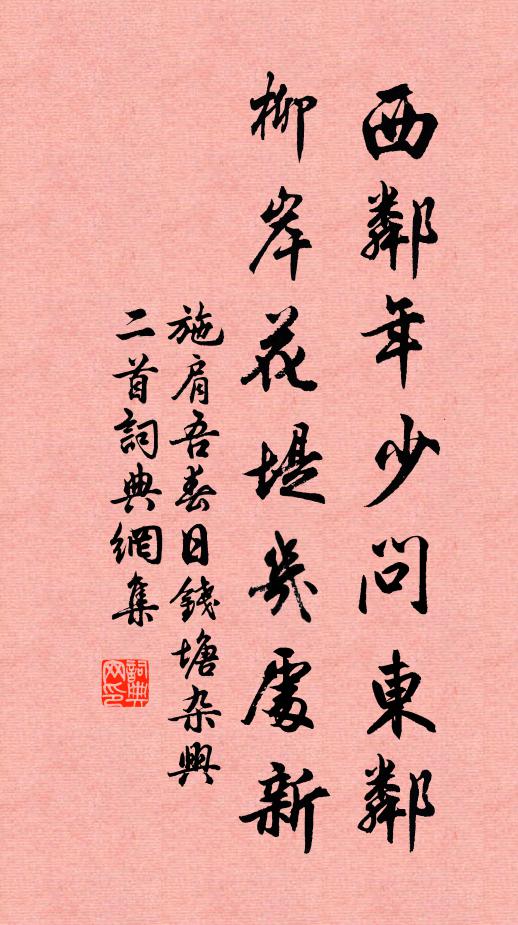 西鄰年少問東鄰
柳岸花堤幾處新
施肩吾春日錢塘杂興
二首詞典網集
詞典
网印